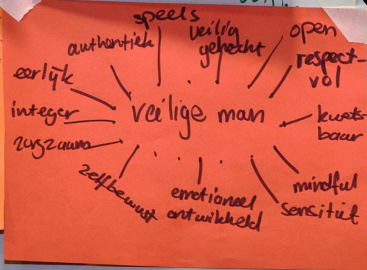 speels
authentiek
veilig
gehecht
open
respect-
vol
eerlijk
integer
veilige man
kwets-
baar
zorgzaam
zelfbewust
emotioneel
ontwikkeld
mindful
sensitief